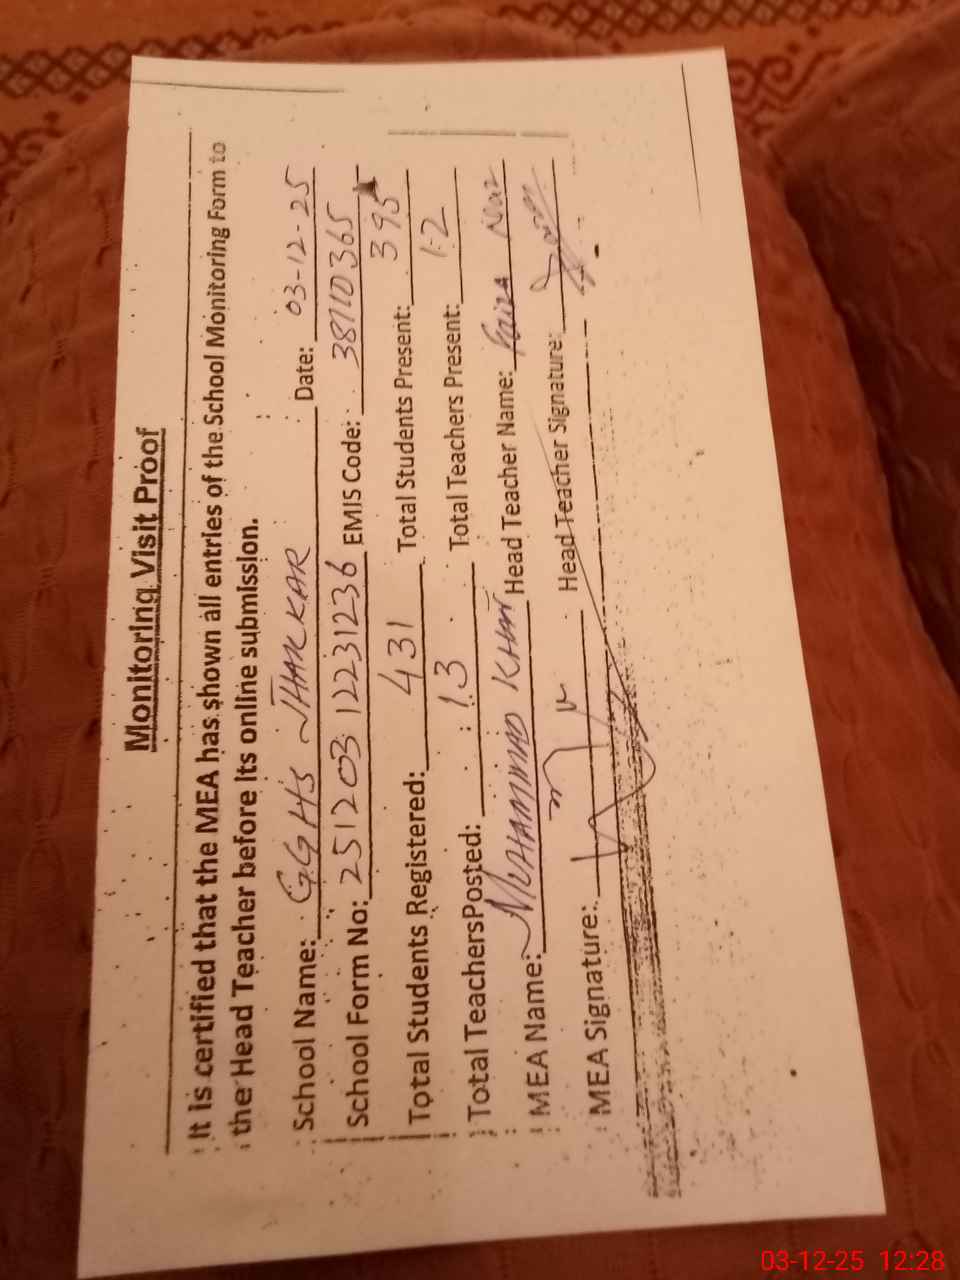 Monitoring Visit Proof
It is certified that the MEA has shown all entries of the School Monitoring Form to
the Head Teacher before Its online submission.
School Name: G.GHS JHARKAR Date: 03-12-25
School Form No: 251203 12231236 EMIS Code: 38110365
Total Students Registered: 431 Total Students Present: 395
Total TeachersPosted: 13 Total Teachers Present: 12
MEA Name: MUHAMMAD KHAN Head Teacher Name: Faiza Naz
MEA Signature: Head Teacher Signature:
03-12-25 12:28